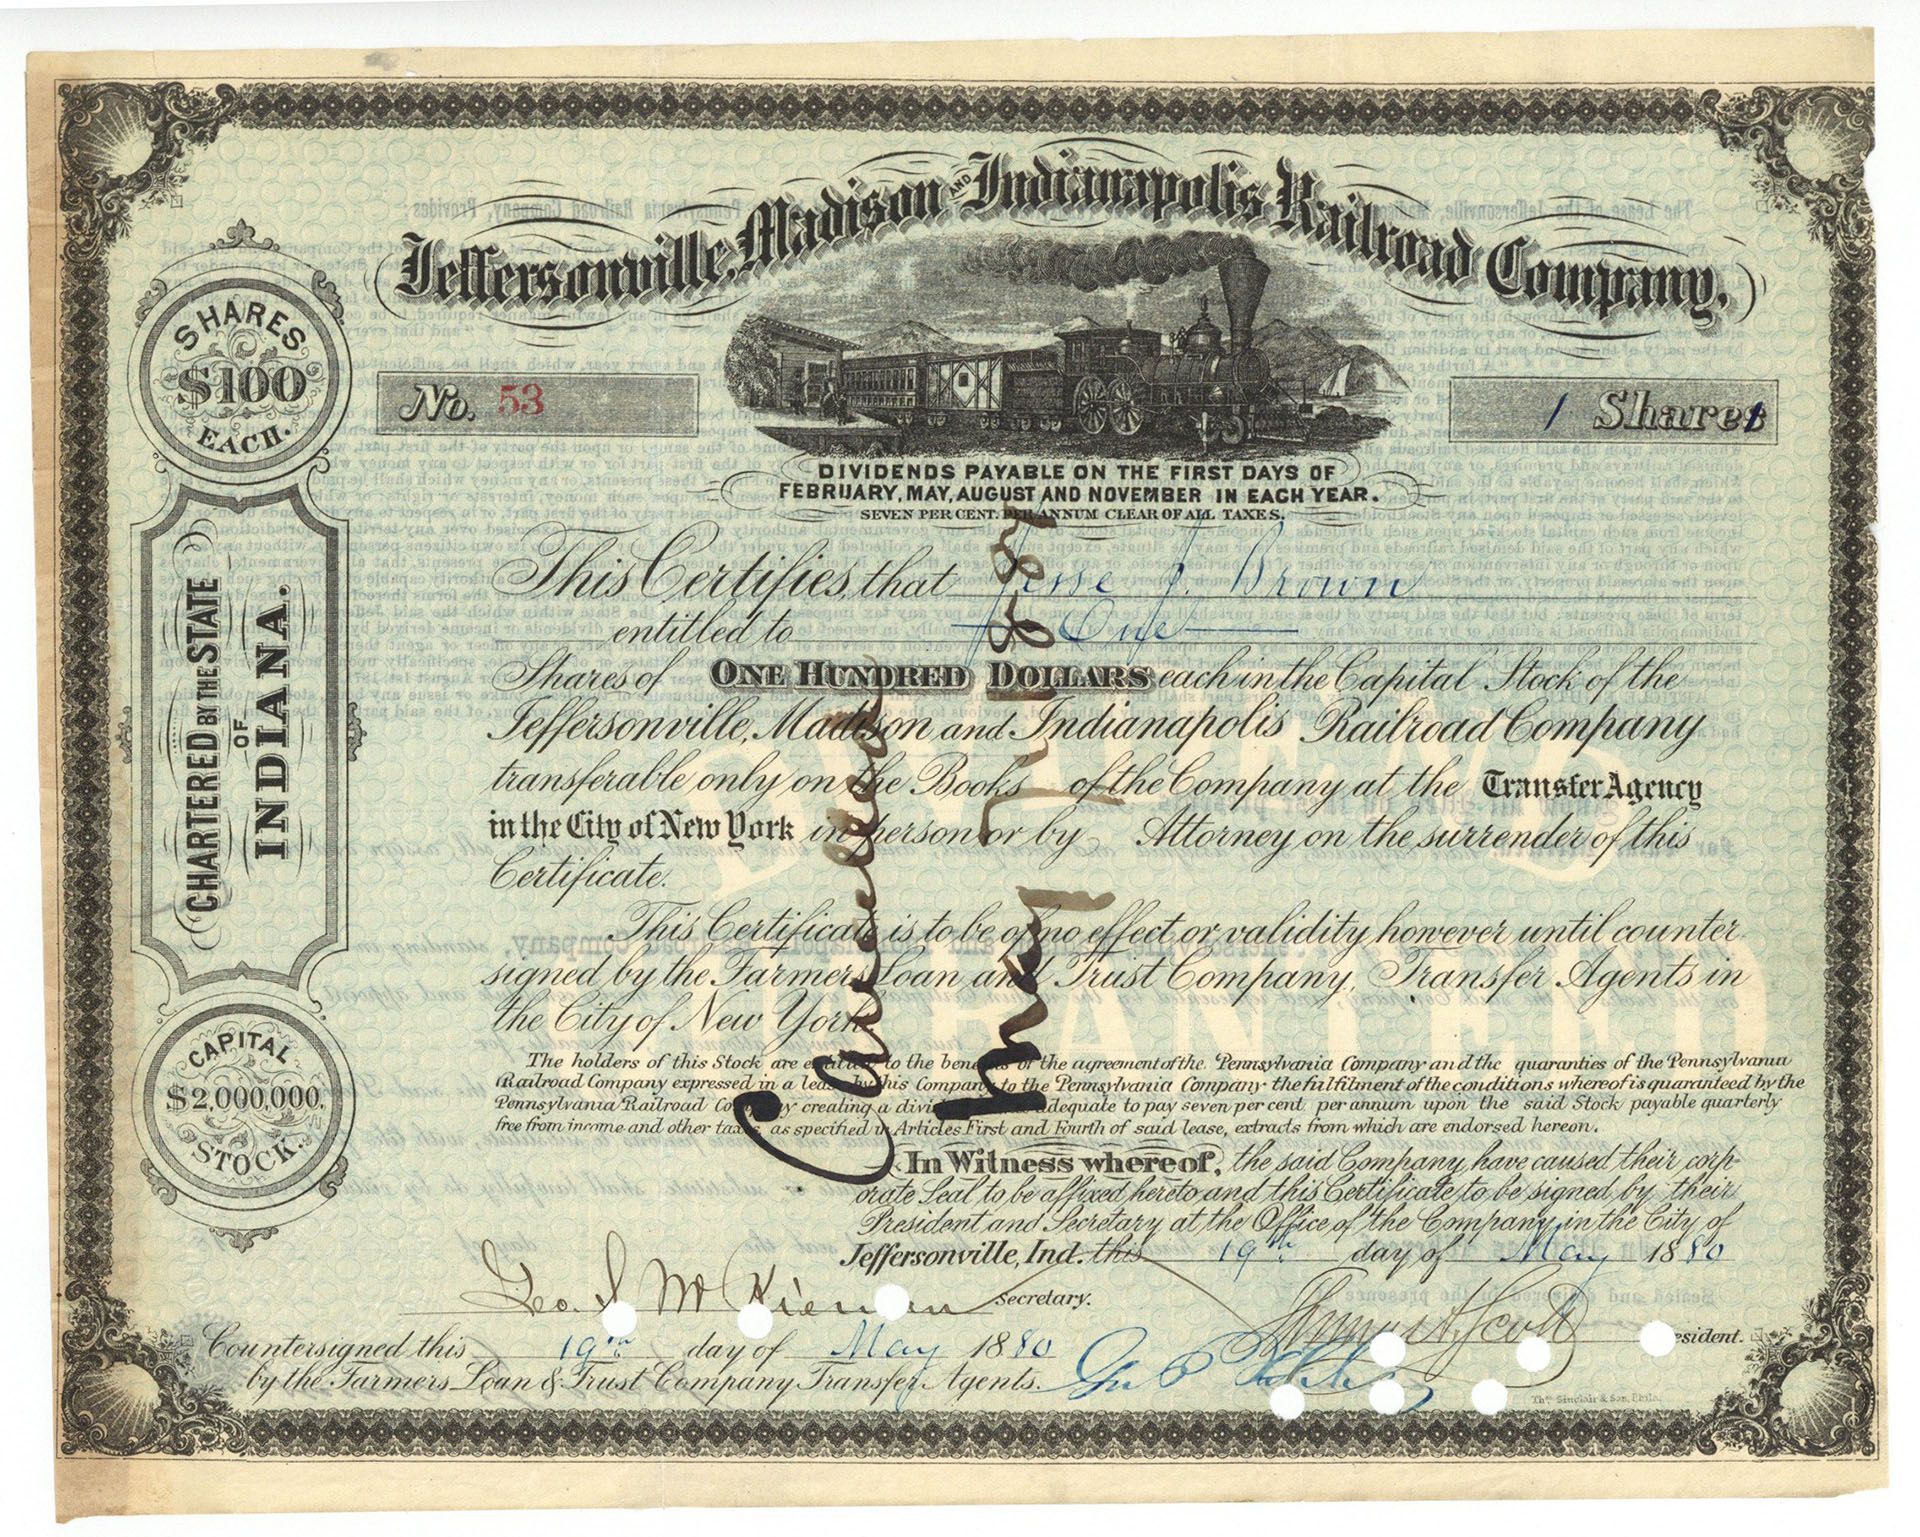 Jeffersonville, Madison AND Indianapolis Railroad Company.
SHARES
$100
EACH.
No. 53
1 Shares
DIVIDENDS PAYABLE ON THE FIRST DAYS OF
FEBRUARY, MAY, AUGUST AND NOVEMBER IN EACH YEAR.
SEVEN PER CENT. PER ANNUM CLEAR OF ALL TAXES.
CHARTERED BY THE STATE
OF
INDIANA.
This Certifies, that Jesse J. Brown
entitled to One
Shares of ONE HUNDRED DOLLARS each in the Capital Stock of the
Jeffersonville, Madison and Indianapolis Railroad Company
transferable only on the Books of the Company at the Transfer Agency
in the City of New York in person or by Attorney on the surrender of this
Certificate.
This Certificate is to be of no effect or validity, however until counter
signed by the Farmers Loan and Trust Company, Transfer Agents in
the City of New York.
CAPITAL
$2,000,000.
STOCK.
The holders of this Stock are entitled to the benefits of the agreement of the Pennsylvania Company and the guaranties of the Pennsylvania
Railroad Company expressed in a lease by this Company to the Pennsylvania Company the fulfilment of the conditions whereof is guaranteed by the
Pennsylvania Railroad Company creating a dividend adequate to pay seven per cent per annum upon the said Stock payable quarterly
free from income and other taxes, as specified in Articles First and Fourth of said lease, extracts from which are endorsed hereon.
In Witness whereof, the said Company, have caused their corp-
orate Seal to be affixed hereto and this Certificate to be signed by their
President and Secretary at the Office of the Company, in the City of
Jeffersonville, Ind. this 19th day of May 1880
Secretary.
esident.
Countersigned this 19th day of May 1880
by the Farmers Loan & Trust Company Transfer Agents.
Thos. Sinclair & Son, Phila.
Cancelled